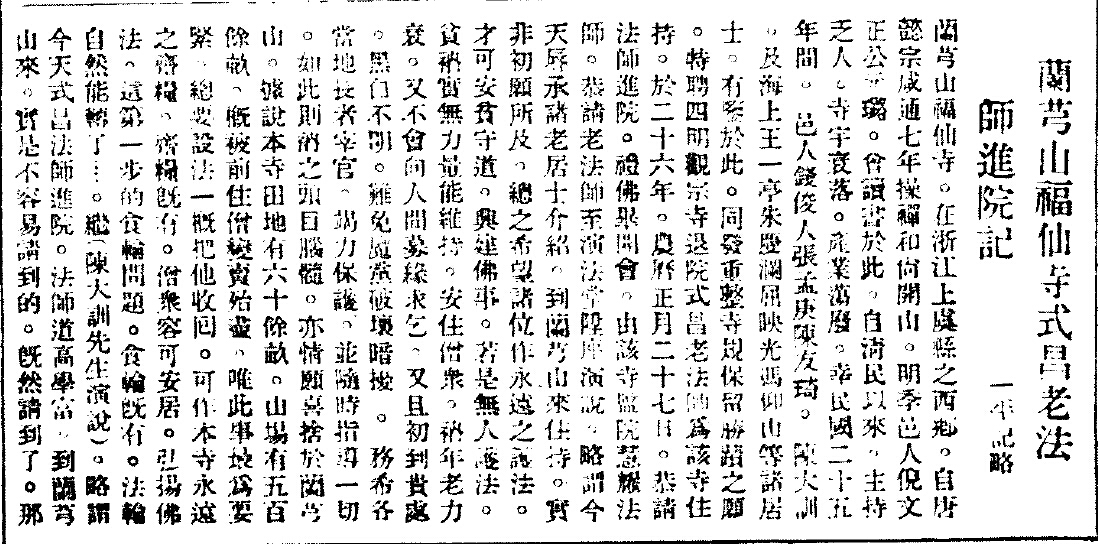 蘭芎山福仙寺式昌老法
師進院記
一華記略
蘭芎山福仙寺。在浙江上虞縣之西鄉。自唐
懿宗咸通七年操禪和尚開山。明季邑人倪文
正公元璐。曾讀書於此。自淸民以來。主持
乏人。寺宇衰落。產業蕩廢。幸民國二十五
年間。邑人錢俊人張孟庚陳友琦。陳大訓
。及海上王一亭朱慶瀾屈映光馮仰山等諸居
士。有鑒於此。同發重整寺規保留勝蹟之願
。特聘四明觀宗寺退院式昌老法師爲該寺住
持。於二十六年。農曆正月二十七日。恭請
法師進院。禮佛畢開會。由該寺監院慧耀法
師。恭請老法師至演法堂陞座演說。略謂今
天辱承諸老居士介紹。到蘭芎山來住持。實
非初願所及。總之希望諸位作永遠之護法。
才可安貧守道。興建佛事。若是無人護法。
貧衲實無力量能維持。安住僧衆。衲年老力
衰。又不會向人間募緣求乞。又且初到貴處
。黑白不明。難免魔黨破壞暗擾。務希各
當地長者宰官。竭力保護。並隨時指導一切
。如此則衲之頭目腦髓。亦情願喜捨於蘭芎
山。據說本寺田地有六十餘畝。山場有五百
餘畝。槪被前住僧變賣殆盡。唯此事最爲要
緊。總要設法一概把他收回。可作本寺永遠
之齋糧。齋糧旣有。僧衆容可安居。弘揚佛
法。這第一步的食輪問題。食輪旣有。法輪
自然能轉了…。繼(陳大訓先生演說)。略謂
今天式昌法師進院。法師道高學富。到蘭芎
山來。實是不容易請到的。旣然請到了。那